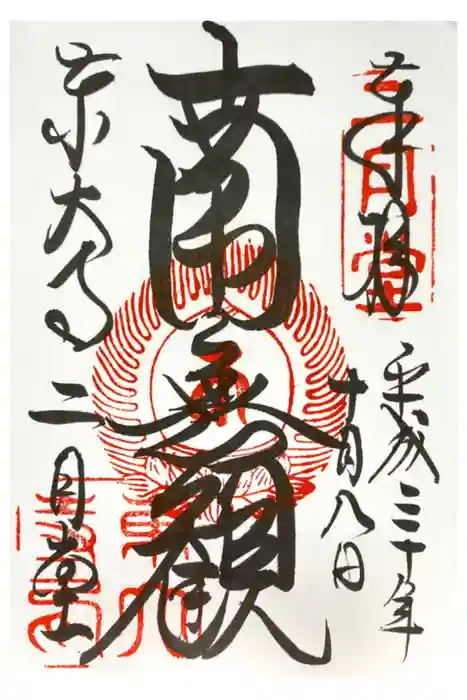 奉拝
二月堂
平成三十年
十月八日
南無観
東大寺
二月堂